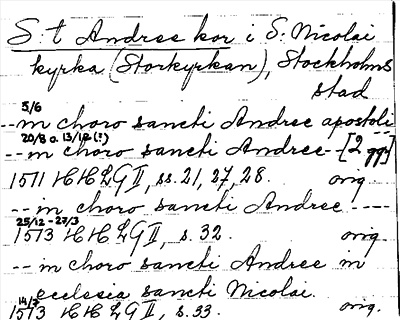 S:t Andree kor i S. Nicolai
kyrka (Storkyrkan), Stockholms
stad
5/6
--in choro sancti Andree apostoli
20/8 o. 13/12 (!)
--in choro sancti Andree--[2 ggr]
1511 HHLGII, ss. 21, 27, 28. orig.
-- in choro sancti Andree ----
25/12 - 27/3
1513 HHLGII, s. 32. orig.
-- in choro sancti Andree in
ecclesia sancti Nicolai.
1513 HHLGII, s. 33. orig.